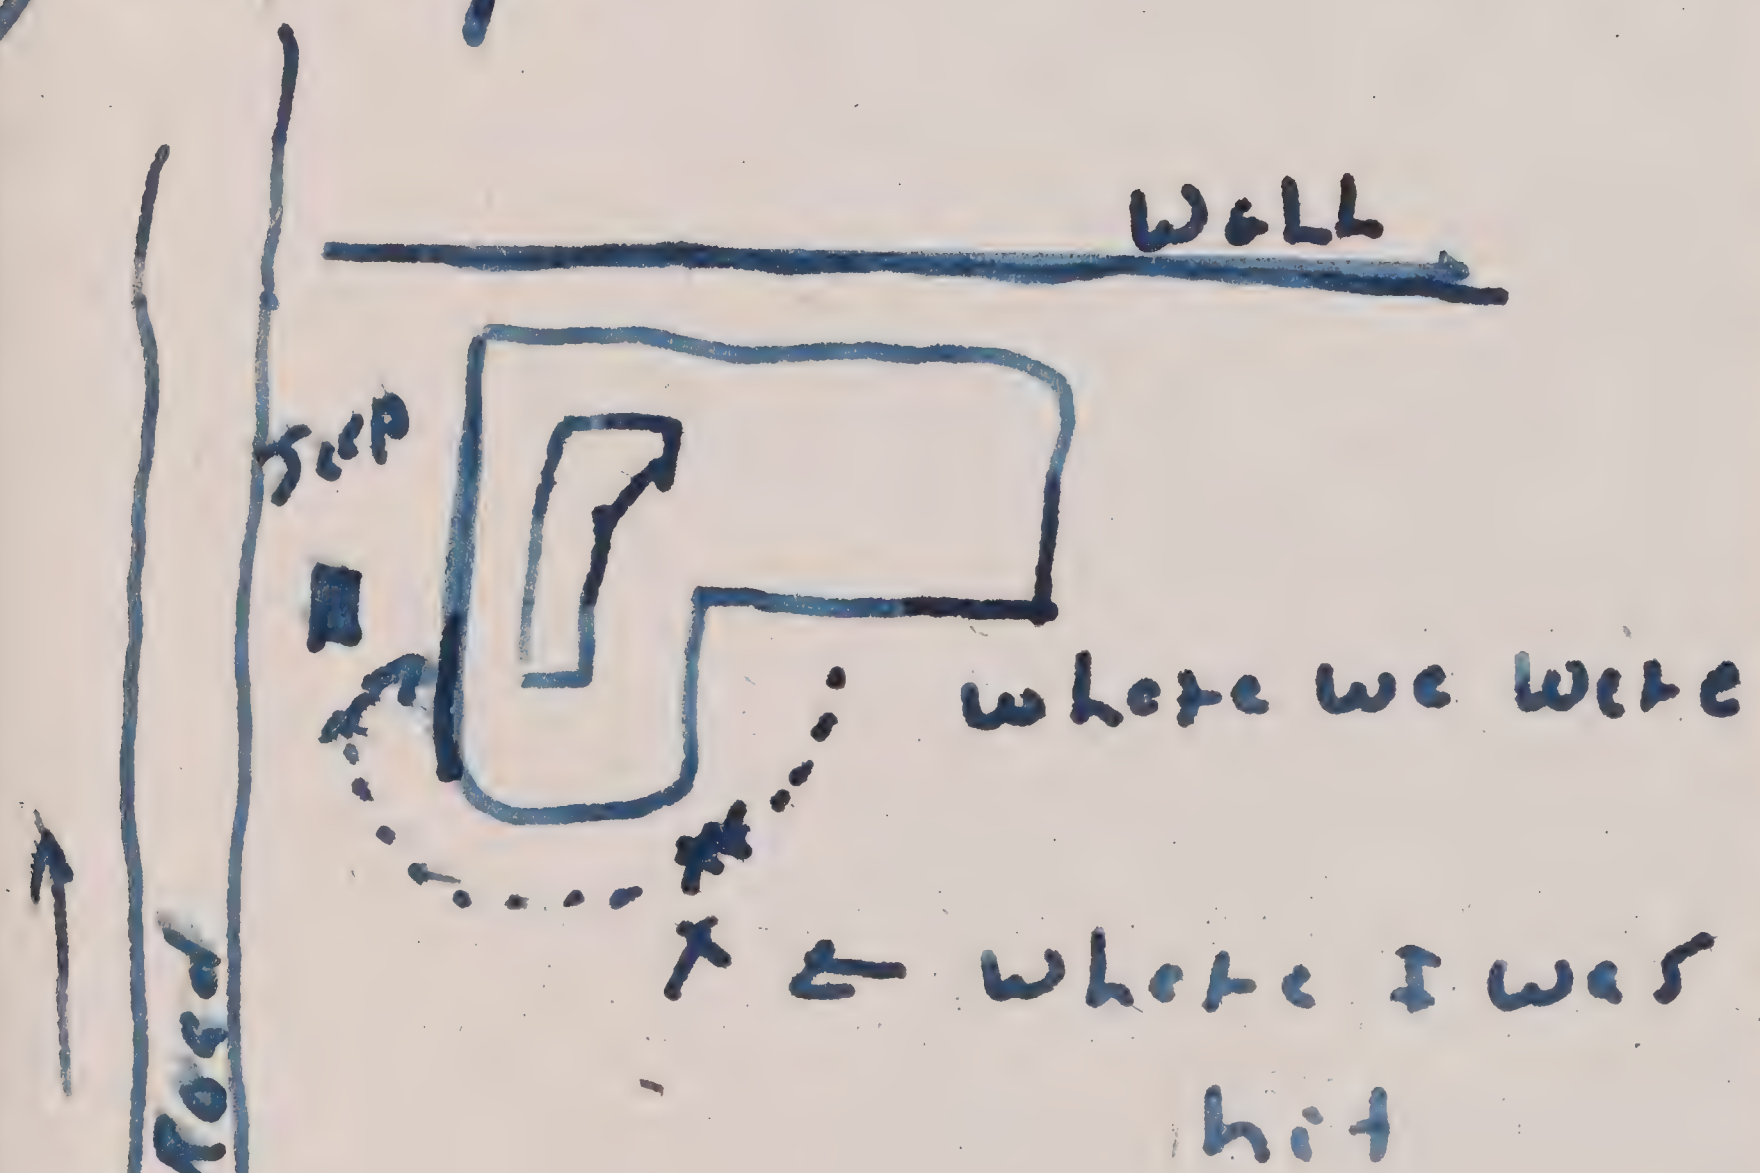 Wall
Jeep
where we were
where I was
hit
Road